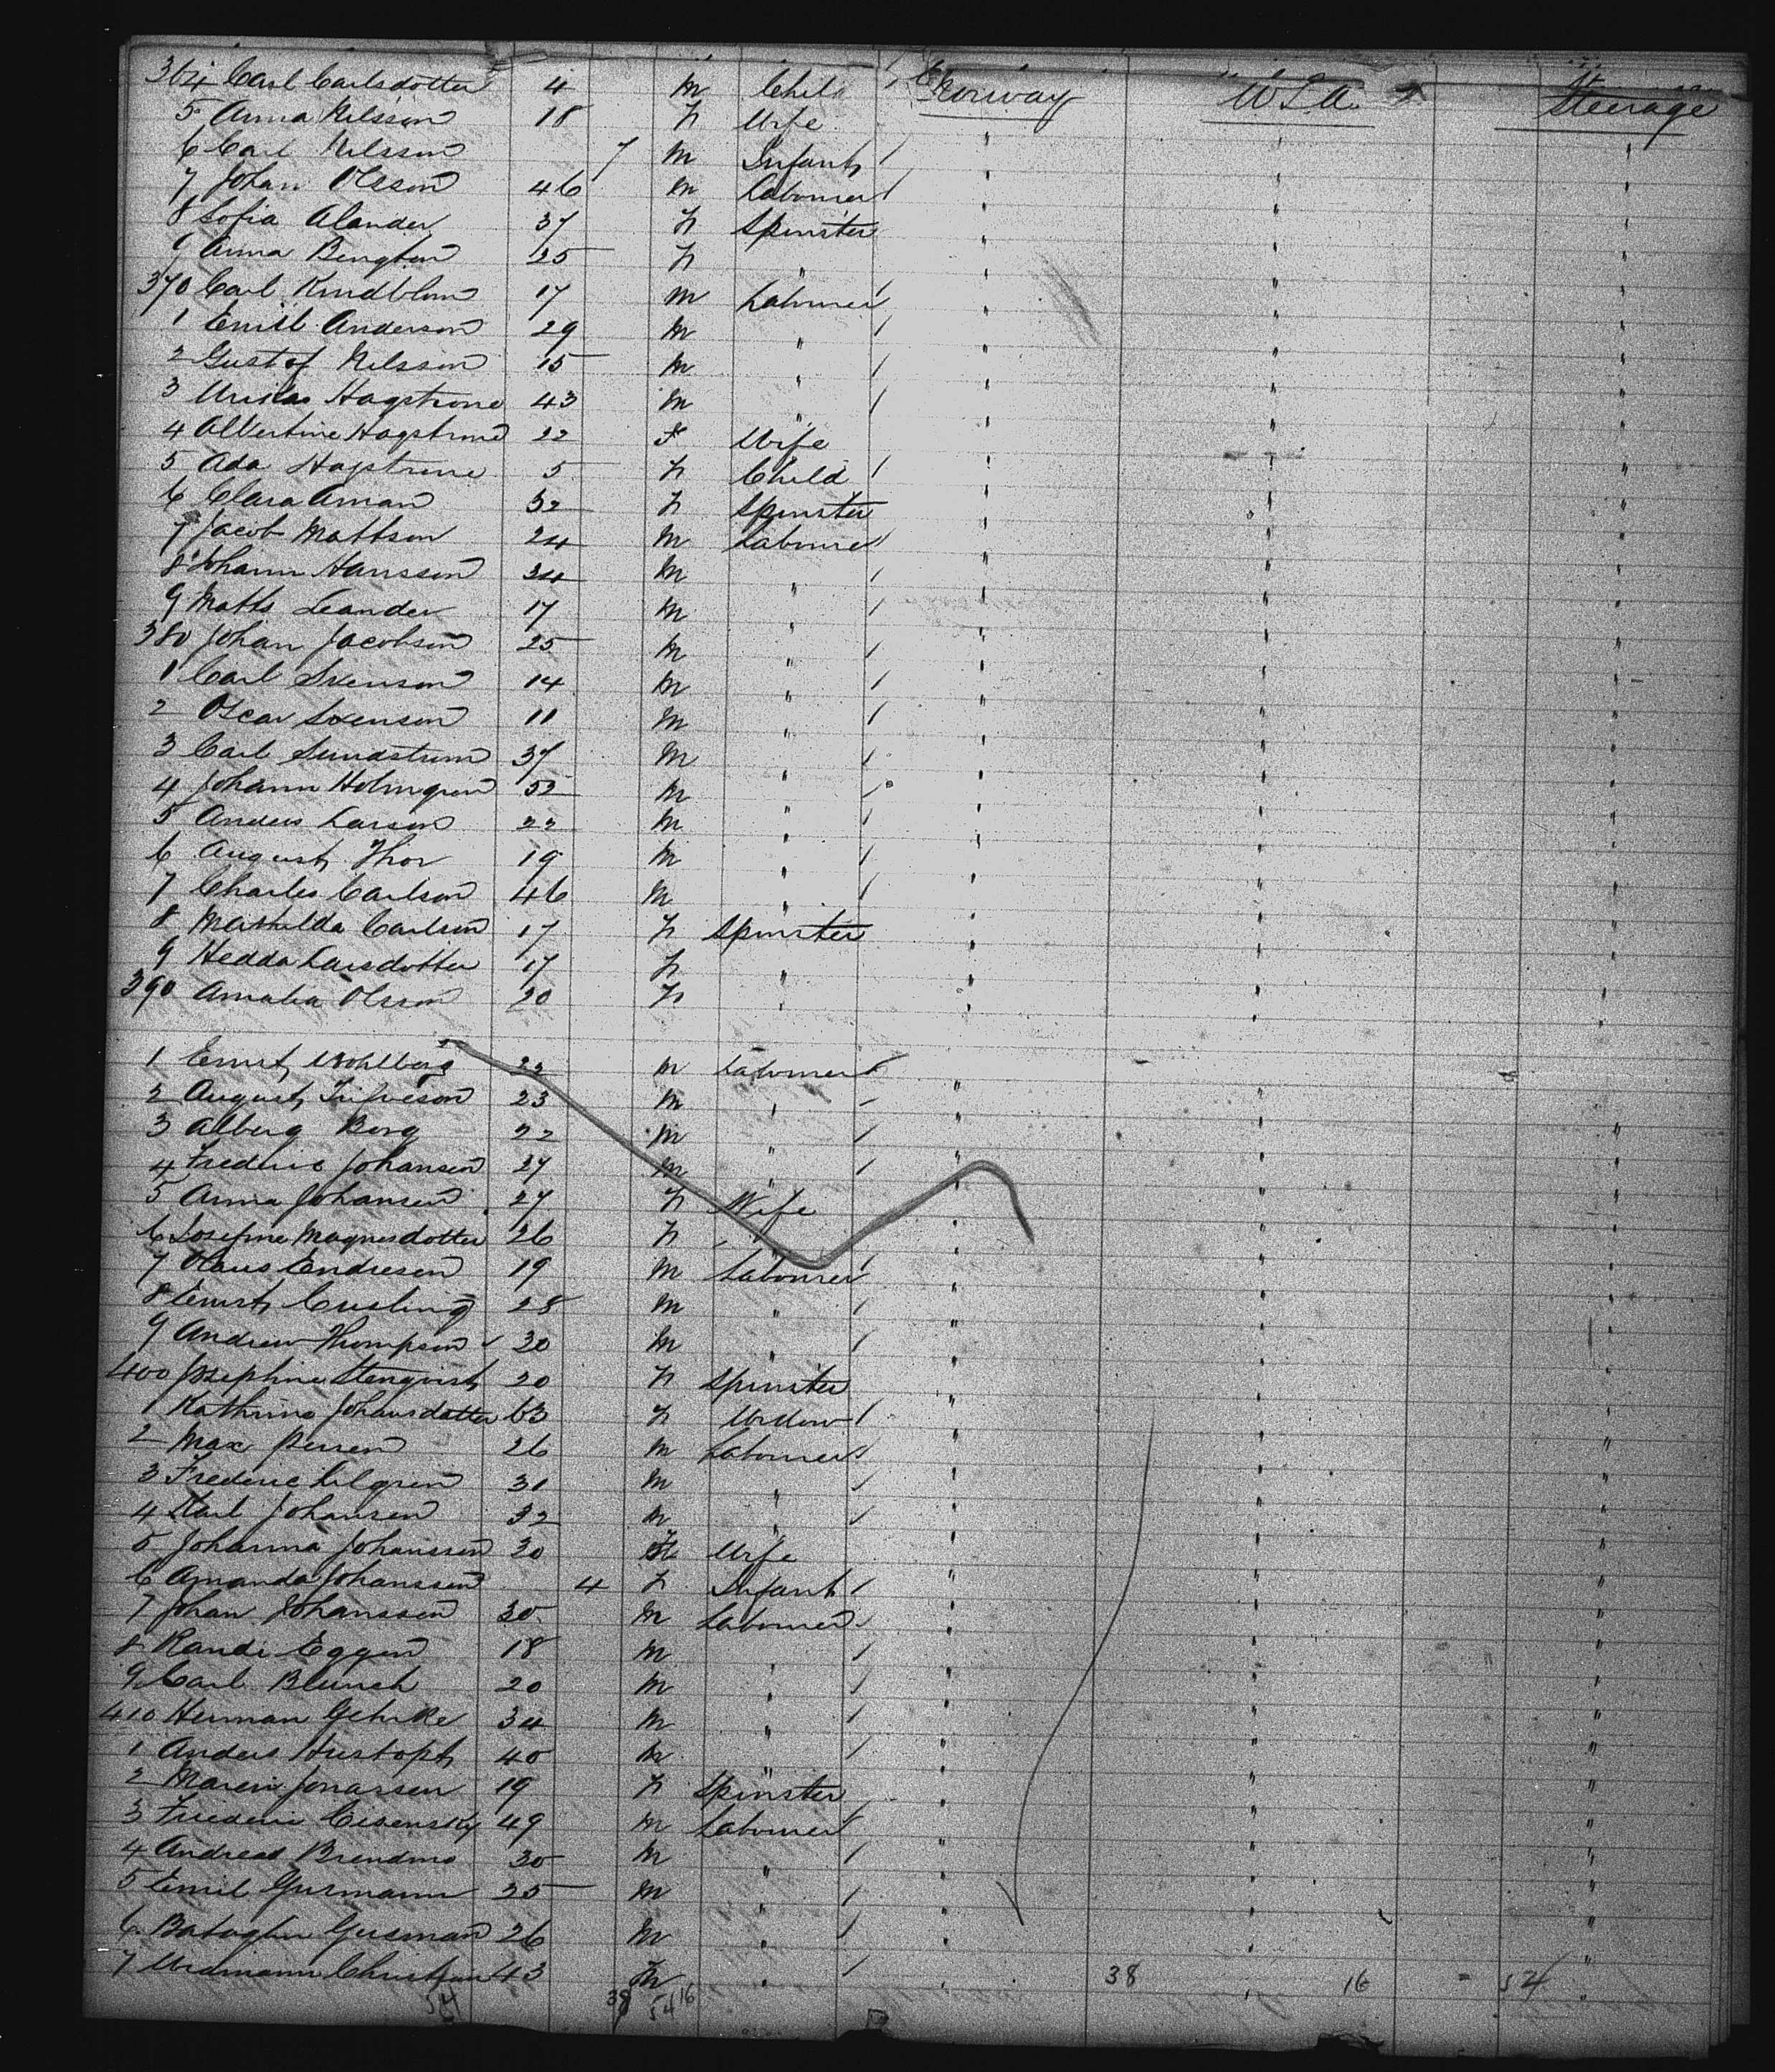 364 Carl Carlsdotter 4 M Child Norway U.S.A. Steerage
5 Anna Nilsson 18 F Wife " " "
6 Carl Nilsson 7 M Infant " " "
7 Johan Olsson 46 M Labourer " " "
8 Sofia Alander 37 F Spinster " " "
9 Anna Bengtson 25 F " " " "
370 Carl Kindblom 17 M Labourer " " "
1 Emil Anderson 29 M " " " "
2 Gustof Nilsson 15 M " " " "
3 Hagstrone 43 M " " " "
4 Albertine Hagstrone 22 F Wife " " "
5 Ada Hagstrone 5 F Child " " "
6 Clara Aman 32 F Spinster " " "
7 Jacob Mattson 24 M Labourer " " "
8 Johann Hansson 34 M " " " "
9 Matts Leander 17 M " " " "
380 Johan Jacobson 25 M " " " "
1 Carl Svenson 14 M " " " "
2 Oscar Svenson 11 M " " " "
3 Carl Sundstrum 37 M " " " "
4 Johann Holmgren 52 M " " " "
5 Anders Larson 22 M " " " "
6 August Thor 19 M " " " "
7 Charles Carlson 46 M " " " "
8 Mathilda Carlson 17 F Spinster " " "
9 Hedda Larsdotter 17 F " " " "
390 Amalia Olsson 20 F " " " "
1 Ernst Wohlberg 22 M Labourer " " "
2 August 23 M " " " "
3 Alberg Berg 22 M " " " "
4 Frederic Johansen 27 M " " " "
5 Anna Johansen 27 F Wife " " "
6 Josefine Magnesdotter 26 F " " " "
7 Claus Endresen 19 M Labourer " " "
8 Ernst 28 M " " " "
9 Andrew Thompson 30 M " " " "
400 Josephine Stenqvist 20 F Spinster " " "
1 Kathrine Johansdatter 63 F Widow " " "
2 Max 26 M Labourer " " "
3 Frederic Lilgren 30 M " " " "
4 Karl Johansen 32 M " " " "
5 Johanna Johanssen 30 F Wife " " "
6 Amanda Johanssen 4 F Infant " " "
7 Johan Johanssen 30 M Labourer " " "
8 Randi Eggen 18 M " " " "
9 Carl Blunch 20 M " " " "
410 Herman Gehrke 34 M " " " "
1 Anders 40 M " " " "
2 Maren Jonassen 19 F Spinster " " "
3 Frederic Cisensky 49 M Labourer " " "
4 Andreas Brendmo 30 M " " " "
5 Emil Gusmann 25 M " " " "
6 Gusman 26 M " " " "
7 Christian 43 M " " " "
38 16 = 54
54 38 54 16